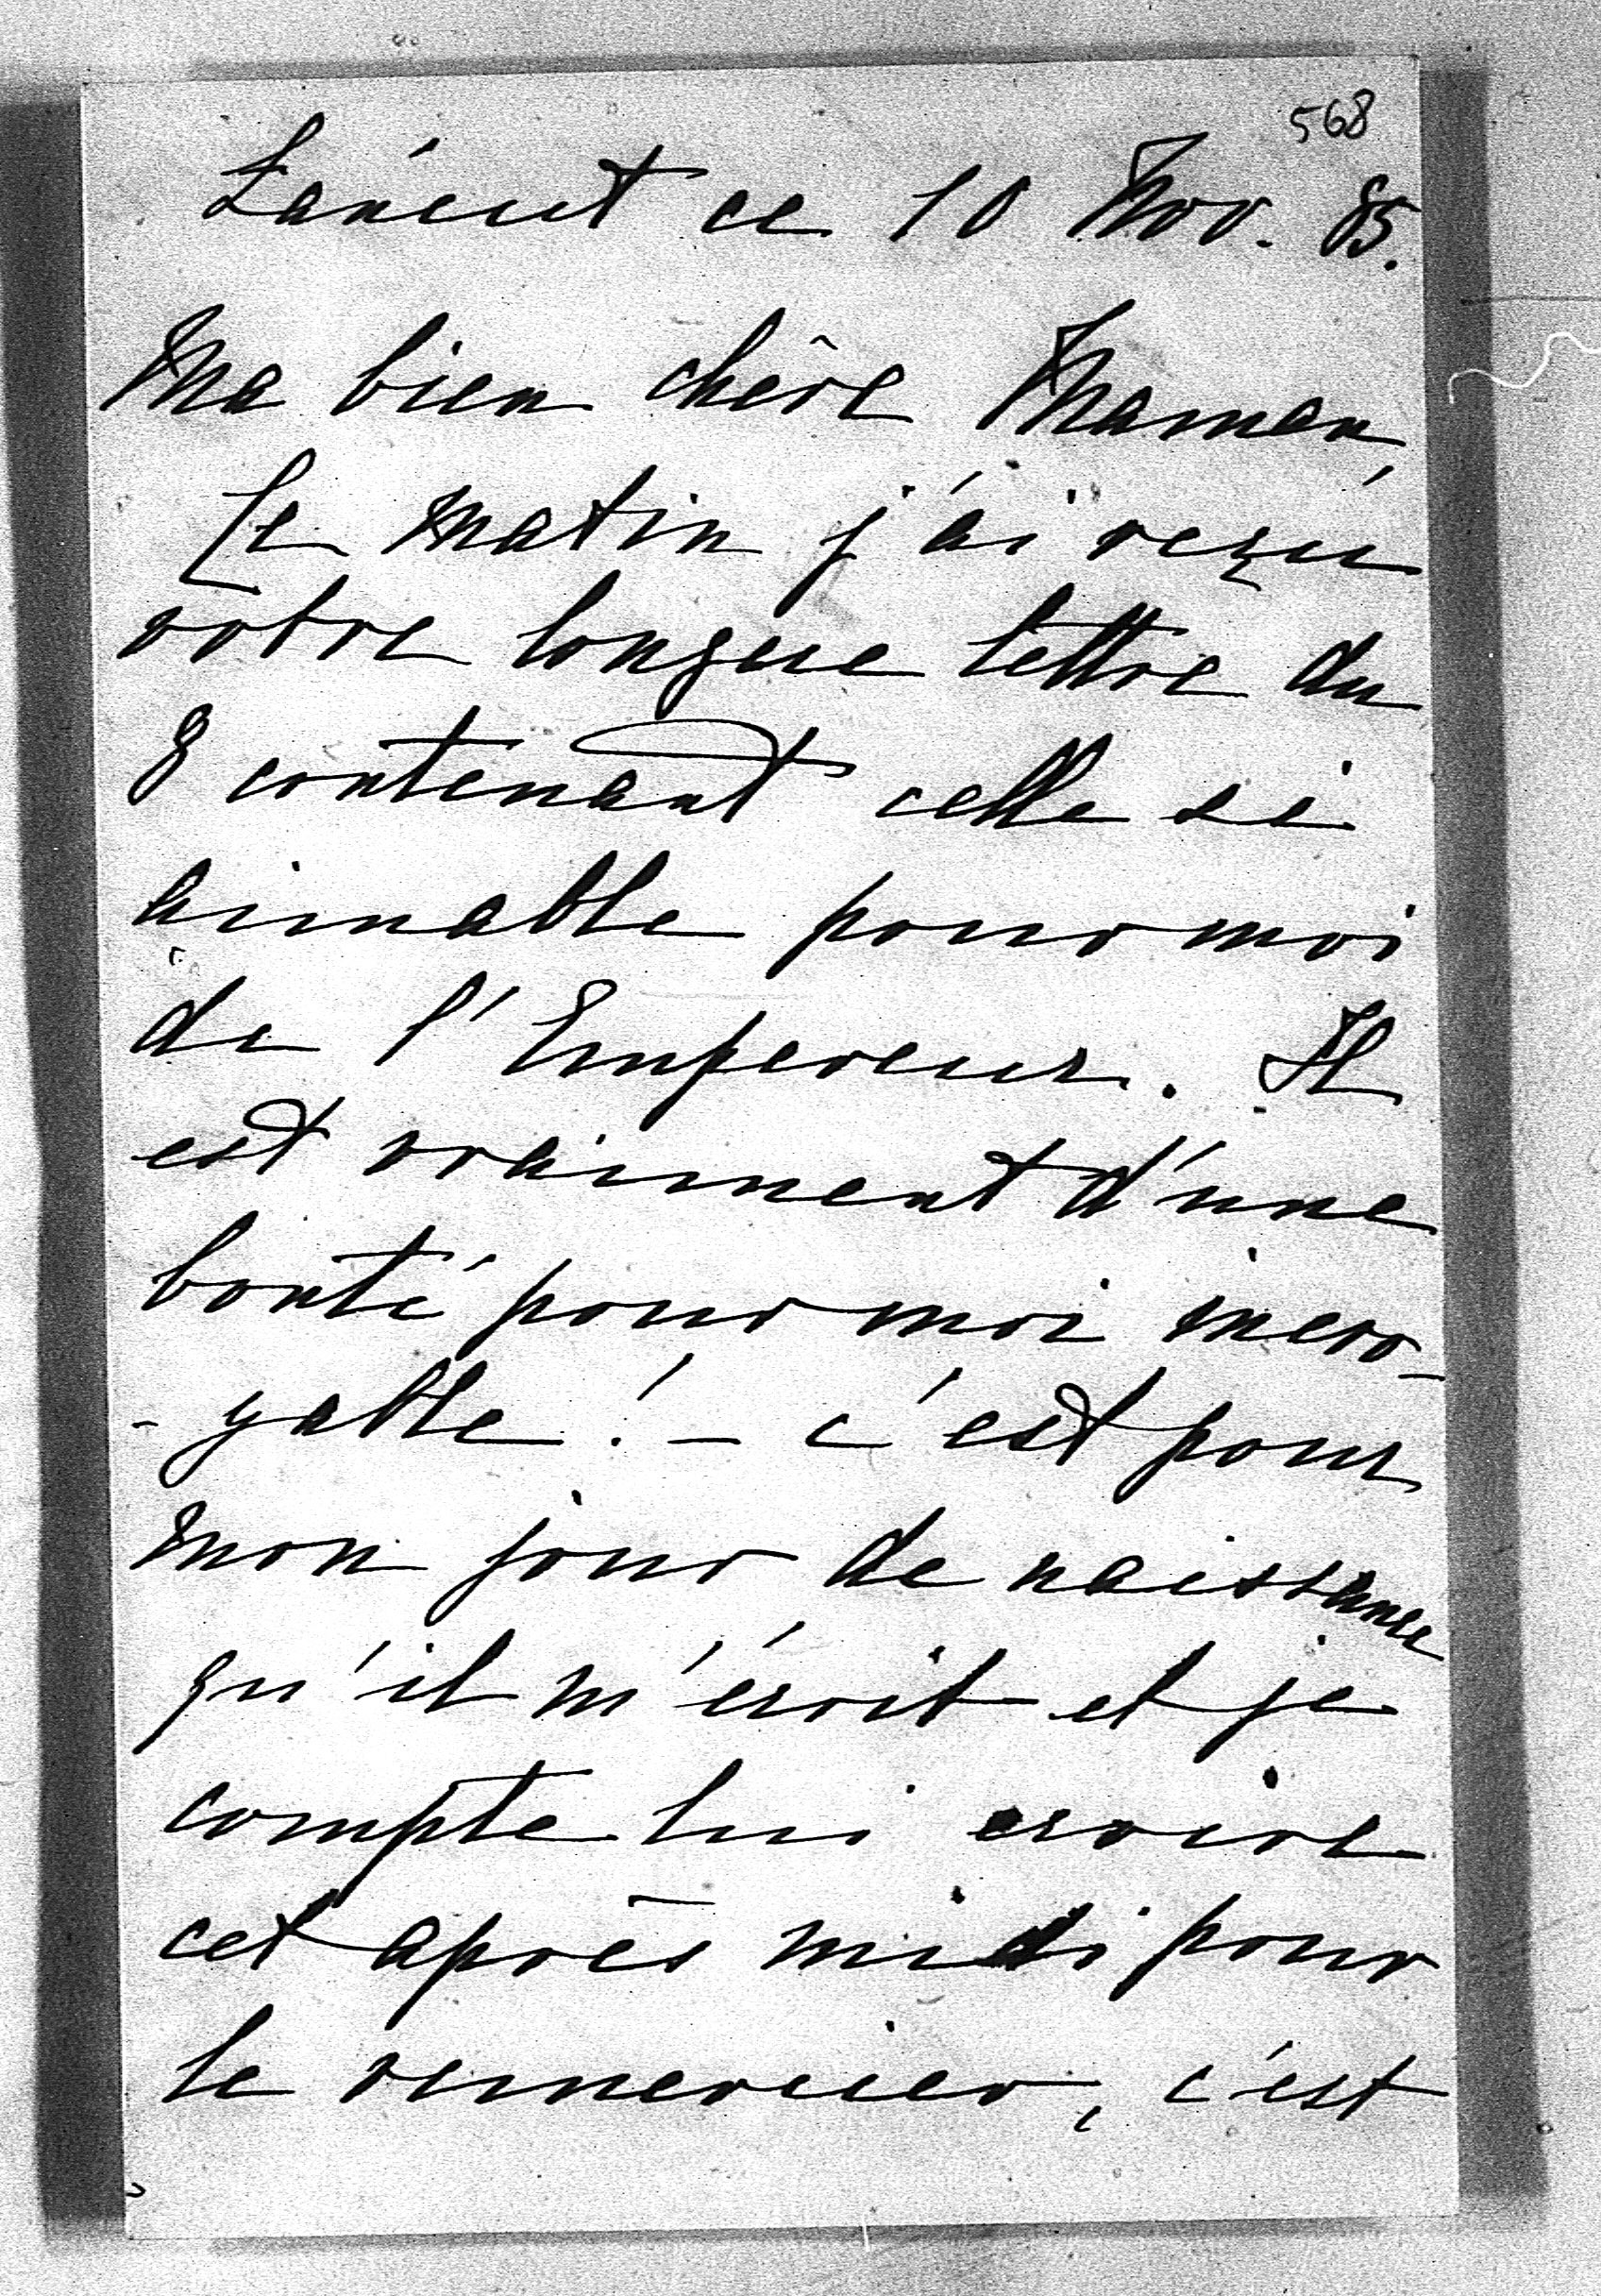 568
Łańcut ce 10 Nov. 85.
Ma bien chère Maman,
Ce matin j'ai reçu
votre longue lettre du
8 contenant celle si
aimable pour moi
de l'Empereur. Il
est vraiment d'une
bonté pour moi incro-
-yable! – c'est pour
mon jour de naissance
qu'il m'écrit et je
compte lui ecrire
cet après midi pour
le remercier, c'est